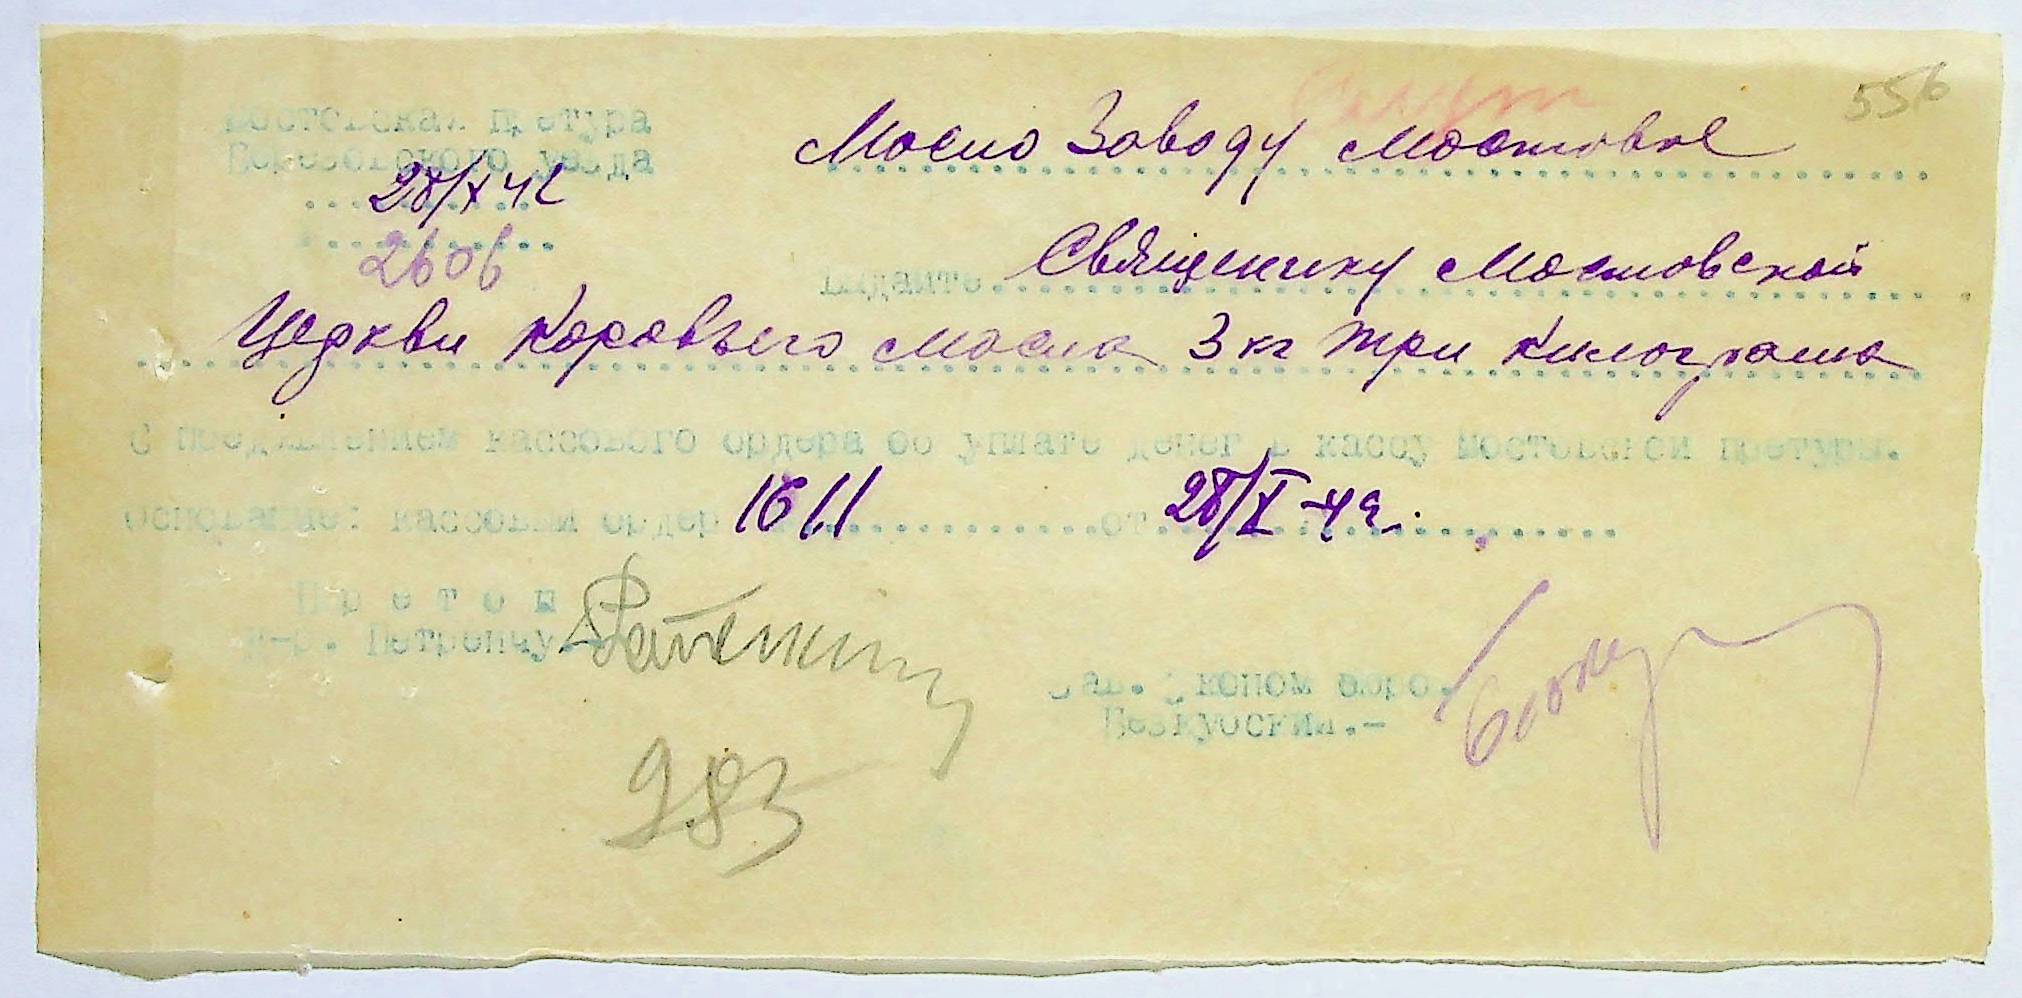 556
Мостовская претура
Березовского уезда
28/X 42
2606
Масло Заводу Мостовое
Выдайте Священику Мостовской
Церкви Коровьего масла 3 кг три килограма
С предявлением кассового ордера об уплате денег в кассу Мостовской претуры.
Основание: кассовый ордер 1611 от 28/X-42.
Претор
Д-р. Петренчу.-
Зав. Эконом бюро.
Безкубский.-
983